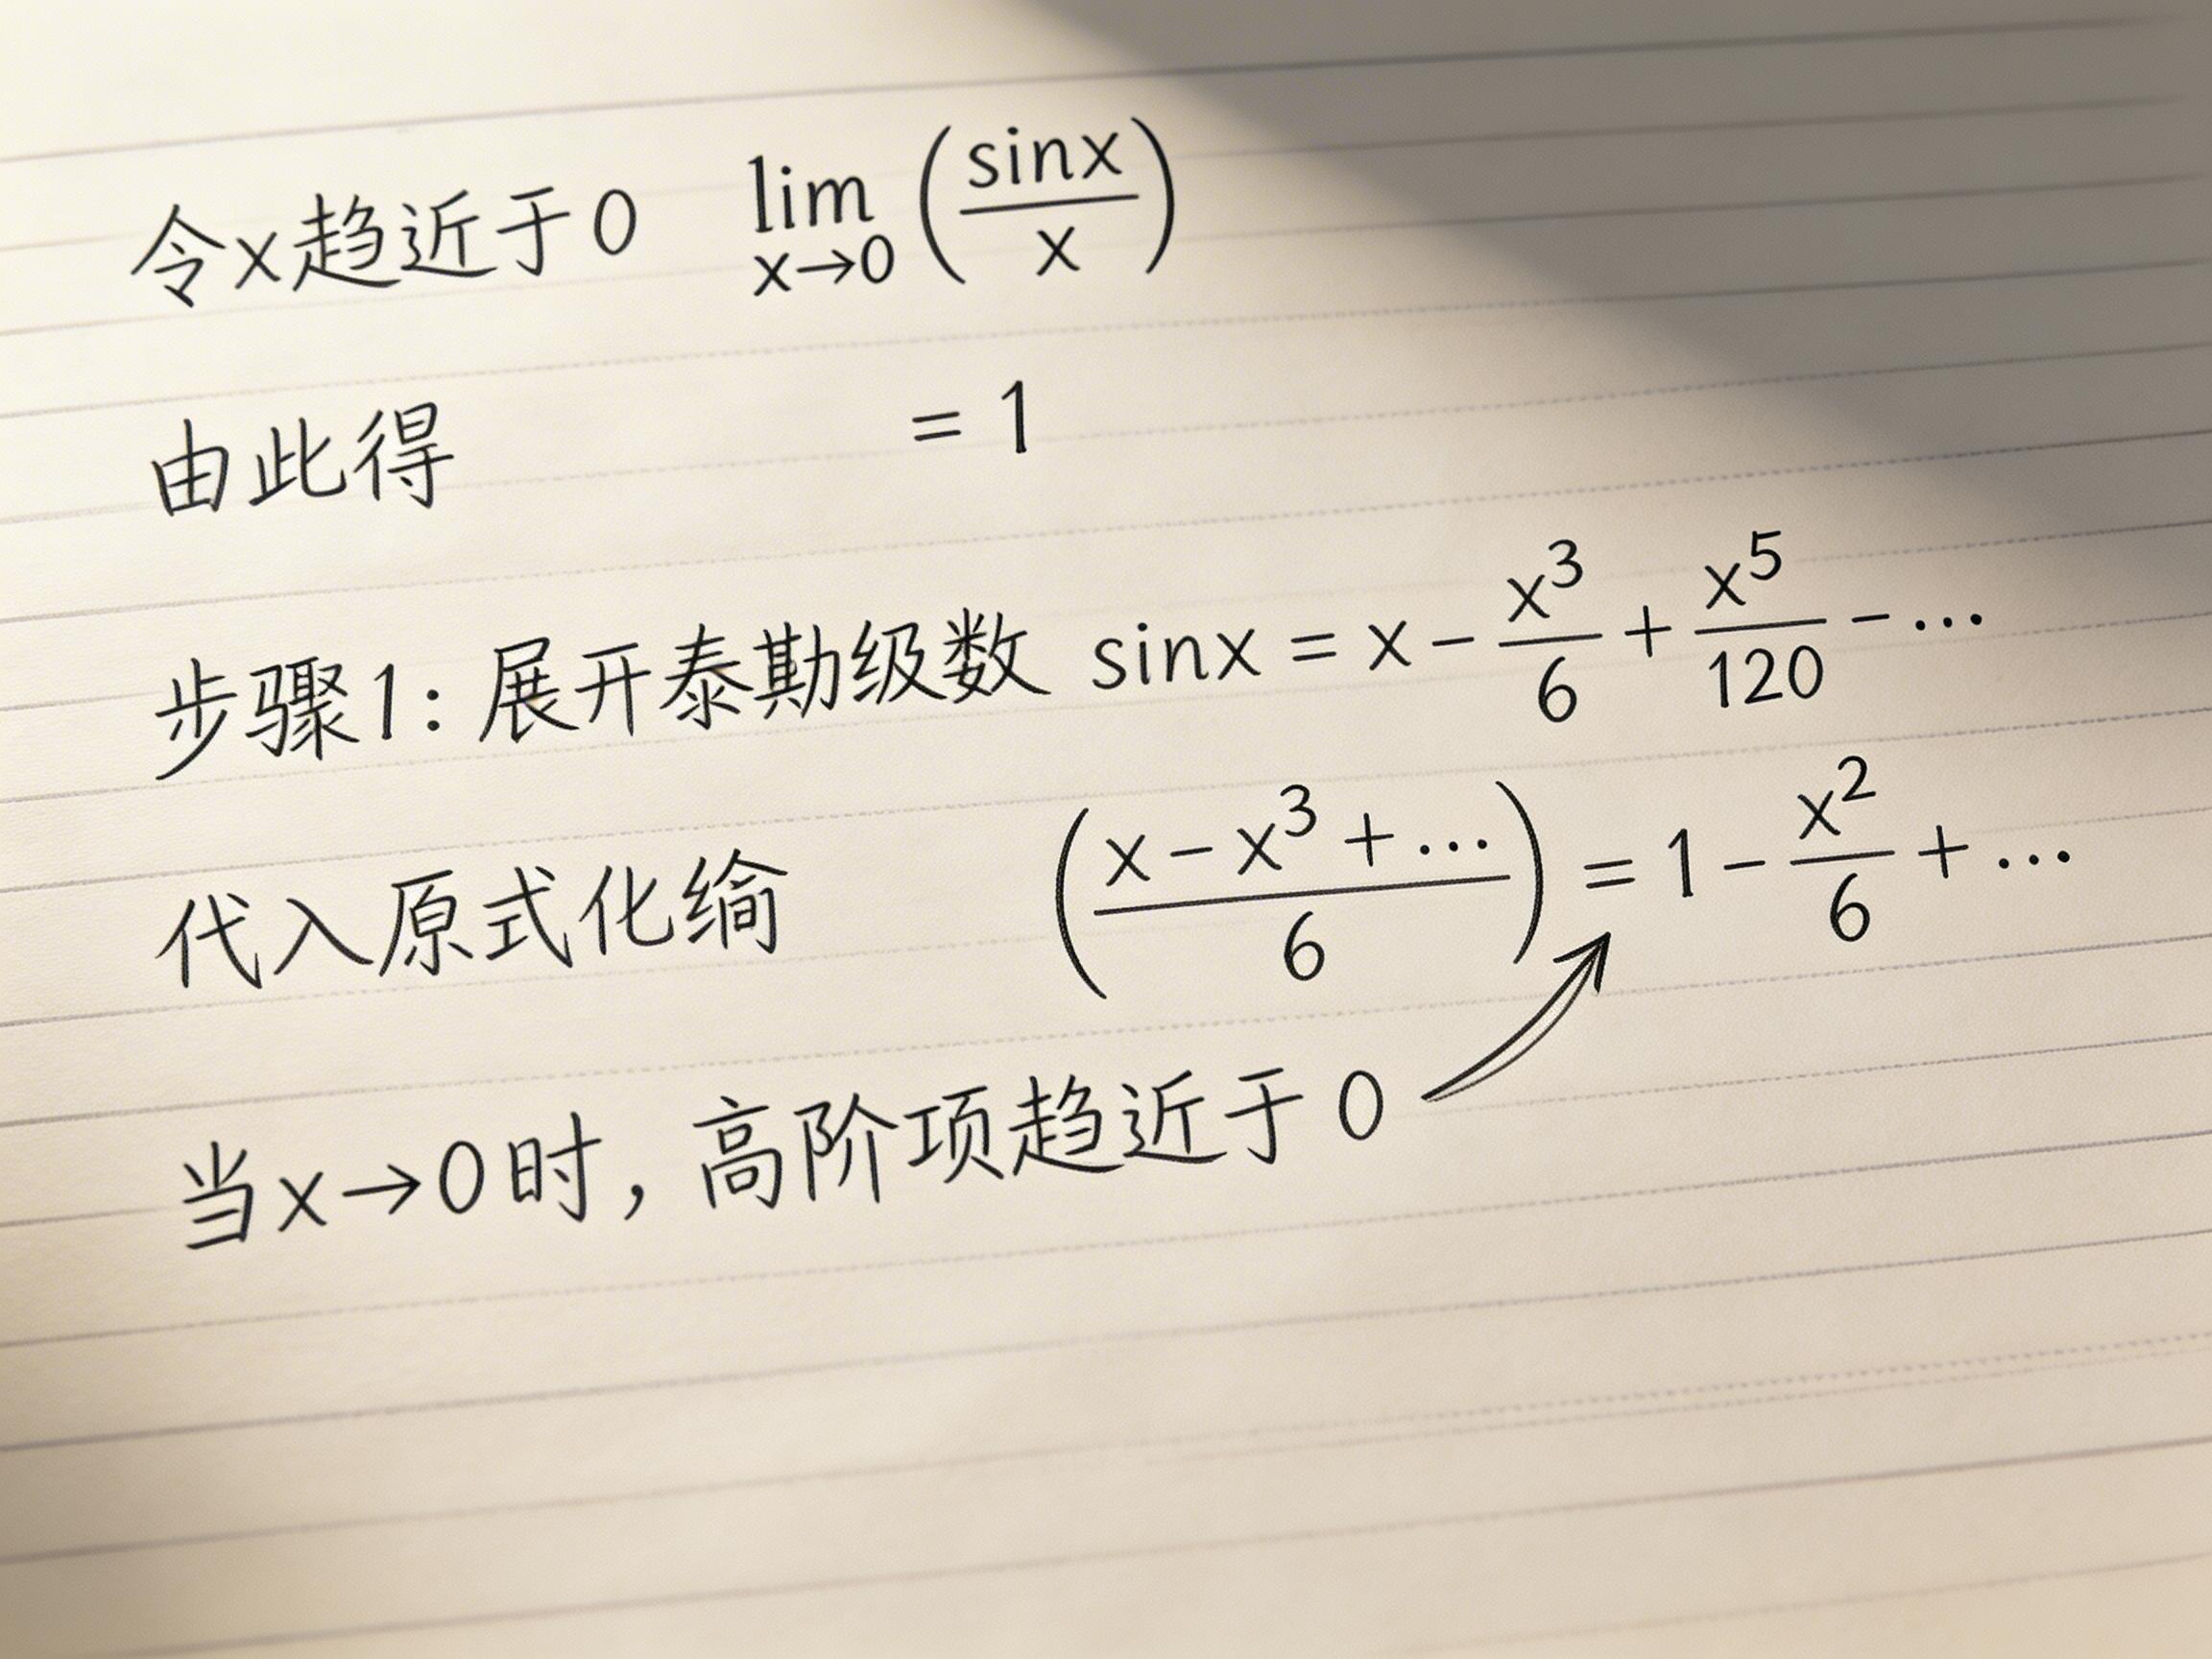 令x趋近于0 lim x→0 (sinx/x)
由此得 = 1
步骤1: 展开泰勒级数 sinx = x - x³/6 + x⁵/120 - ...
代入原式化 ((x - x³ + ...)/6) = 1 - x²/6 + ...
当x→0时, 高阶项趋近于0